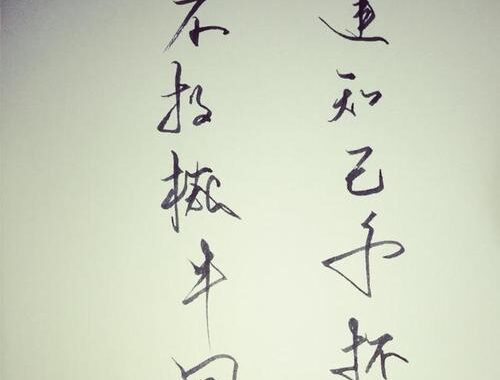 知己千杯
不投機半